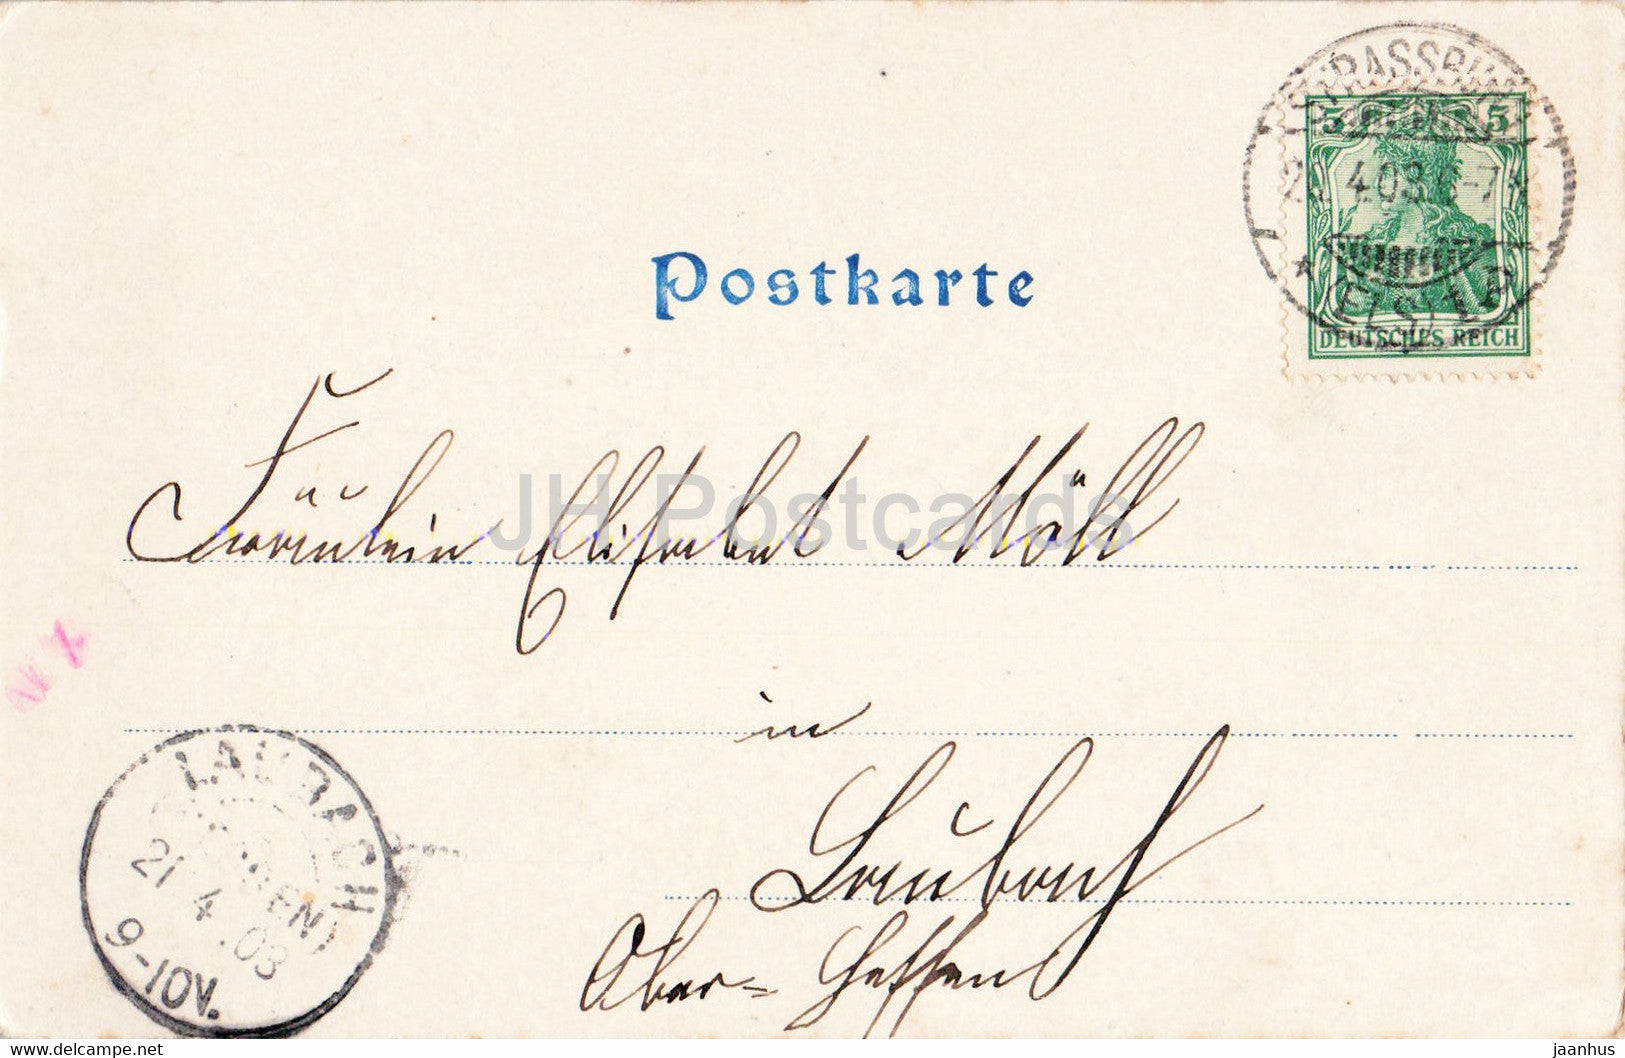 STRASSBURG
5 5
4.03 -7
* (ELS)
DEUTSCHES REICH
Postkarte
Fräulein Elisabet Möll
JH Postcards
in
Laubach
Ober-Hessen
LAUBACH
21 4 .03
9-10V.
delcampe.net
jaanhus